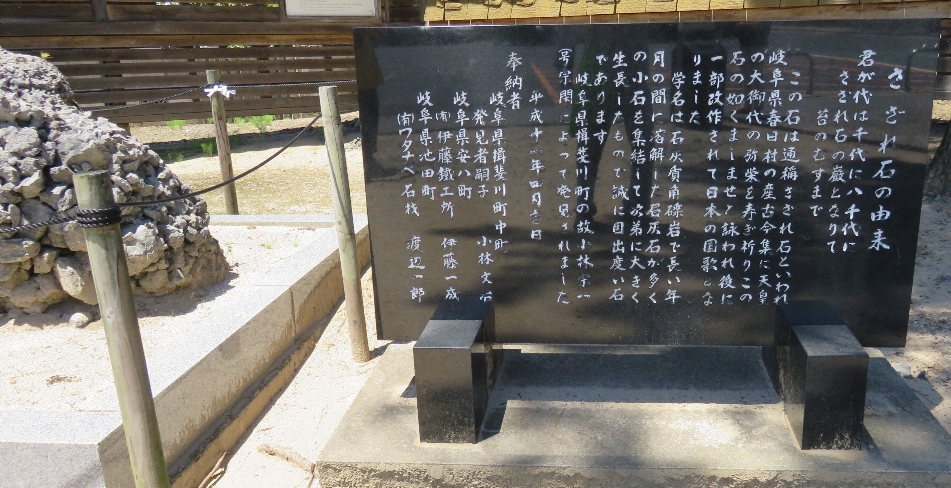 さざれ石の由来
君が代は千代に八千代に
さざれ石の巌となりて
苔のむすまで
この石は通称さざれ石といわれ
岐阜県春日村の産古今集に天皇
の大御代の弥栄を寿ぎ祈りこの
石の如くましませと詠われ後に
一部改作されて日本の国歌とな
りました
学名は石灰質角礫岩で長い年
月の間に溶解した石灰石が多く
の小石を集結して次第に大きく
生長したもので誠に国出度い石
であります
岐阜県揖斐川町の故小林宗一
によって発見されました
平成十一年四月吉日
奉納者
岐阜県揖斐川町中町
発見者嗣子 小林文治
岐阜県安八町
㈲伊藤鐵工所 伊藤一成
岐阜県池田町
㈲ワタナベ石材 渡辺一郎